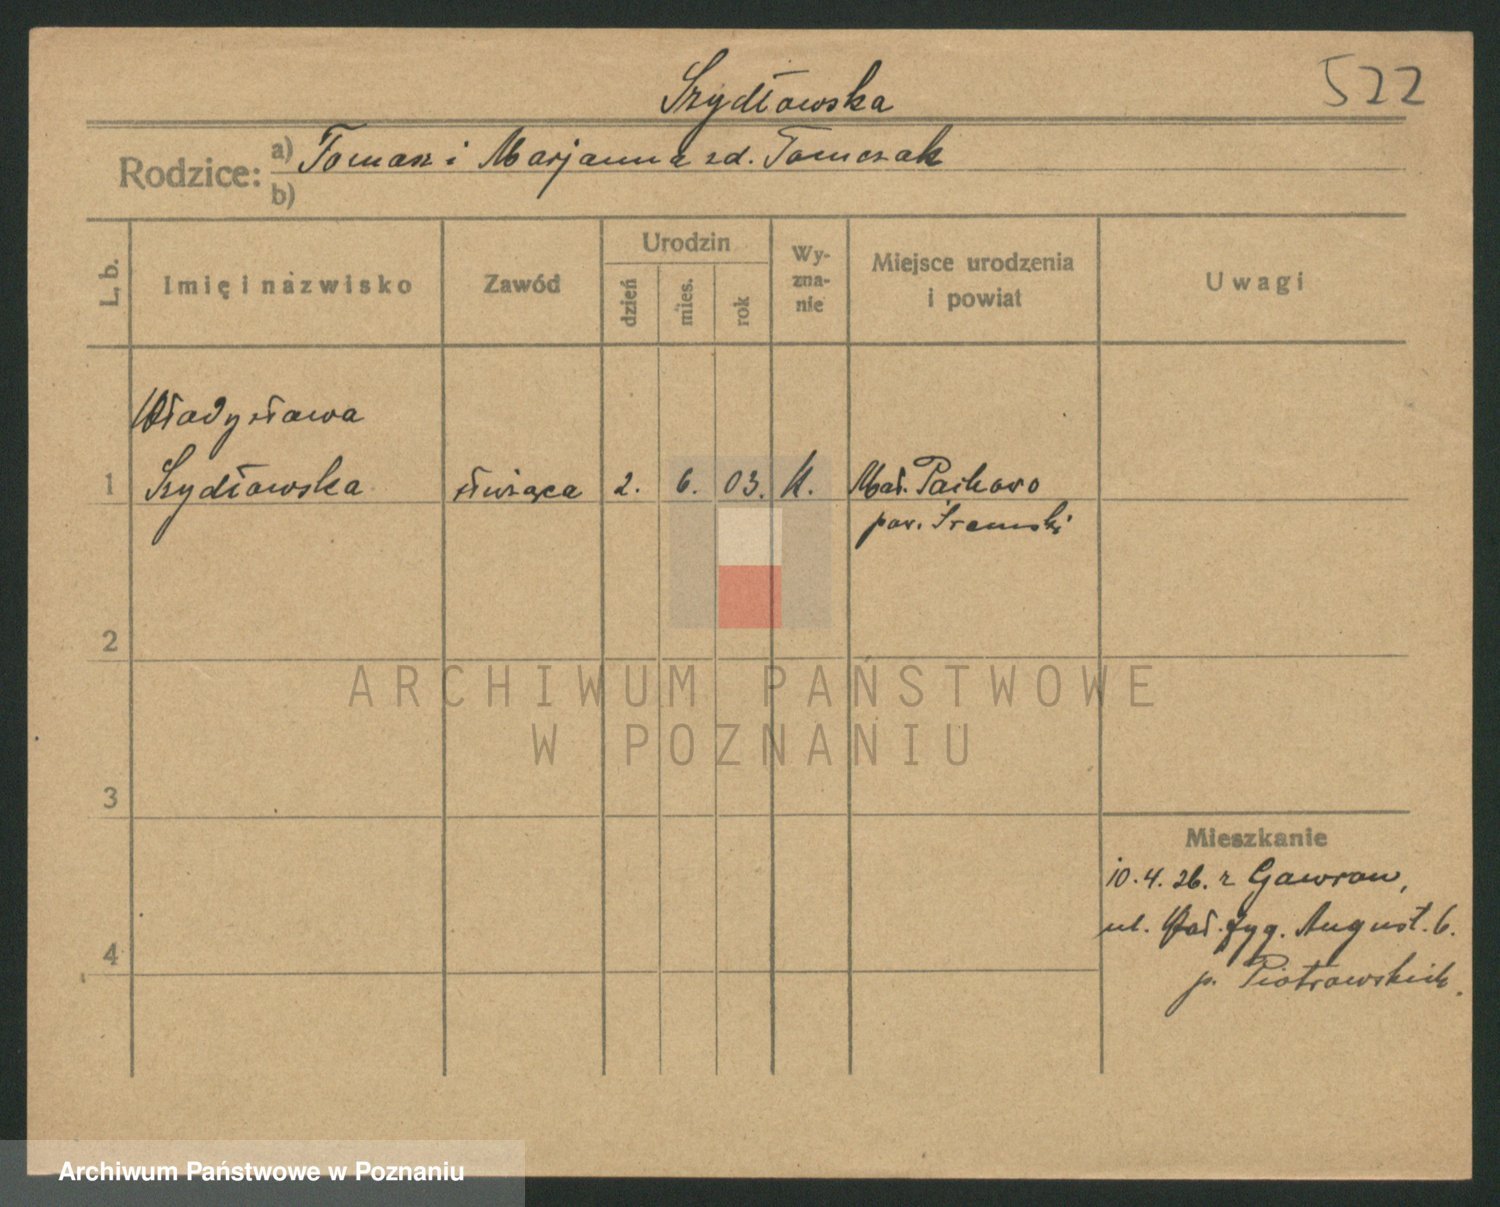 Szydłowska
522
Rodzice: a) Tomasz i Marjanna zd. Tomczak
b)
L. b.
Imię i nazwisko
Zawód
Urodzin
dzień
mies.
rok
Wy-
zna-
nie
Miejsce urodzenia
i powiat
Uwagi
Władysława
1 Szydłowska służąca 2. 6. 03. K. Mał.
pow. Śremski
2
3
4
Mieszkanie
10.4.26. z Gawron,
ul. Zyg. August. 6.
p. Piotrowskich.
ARCHIWUM PAŃSTWOWE
W POZNANIU
Archiwum Państwowe w Poznaniu